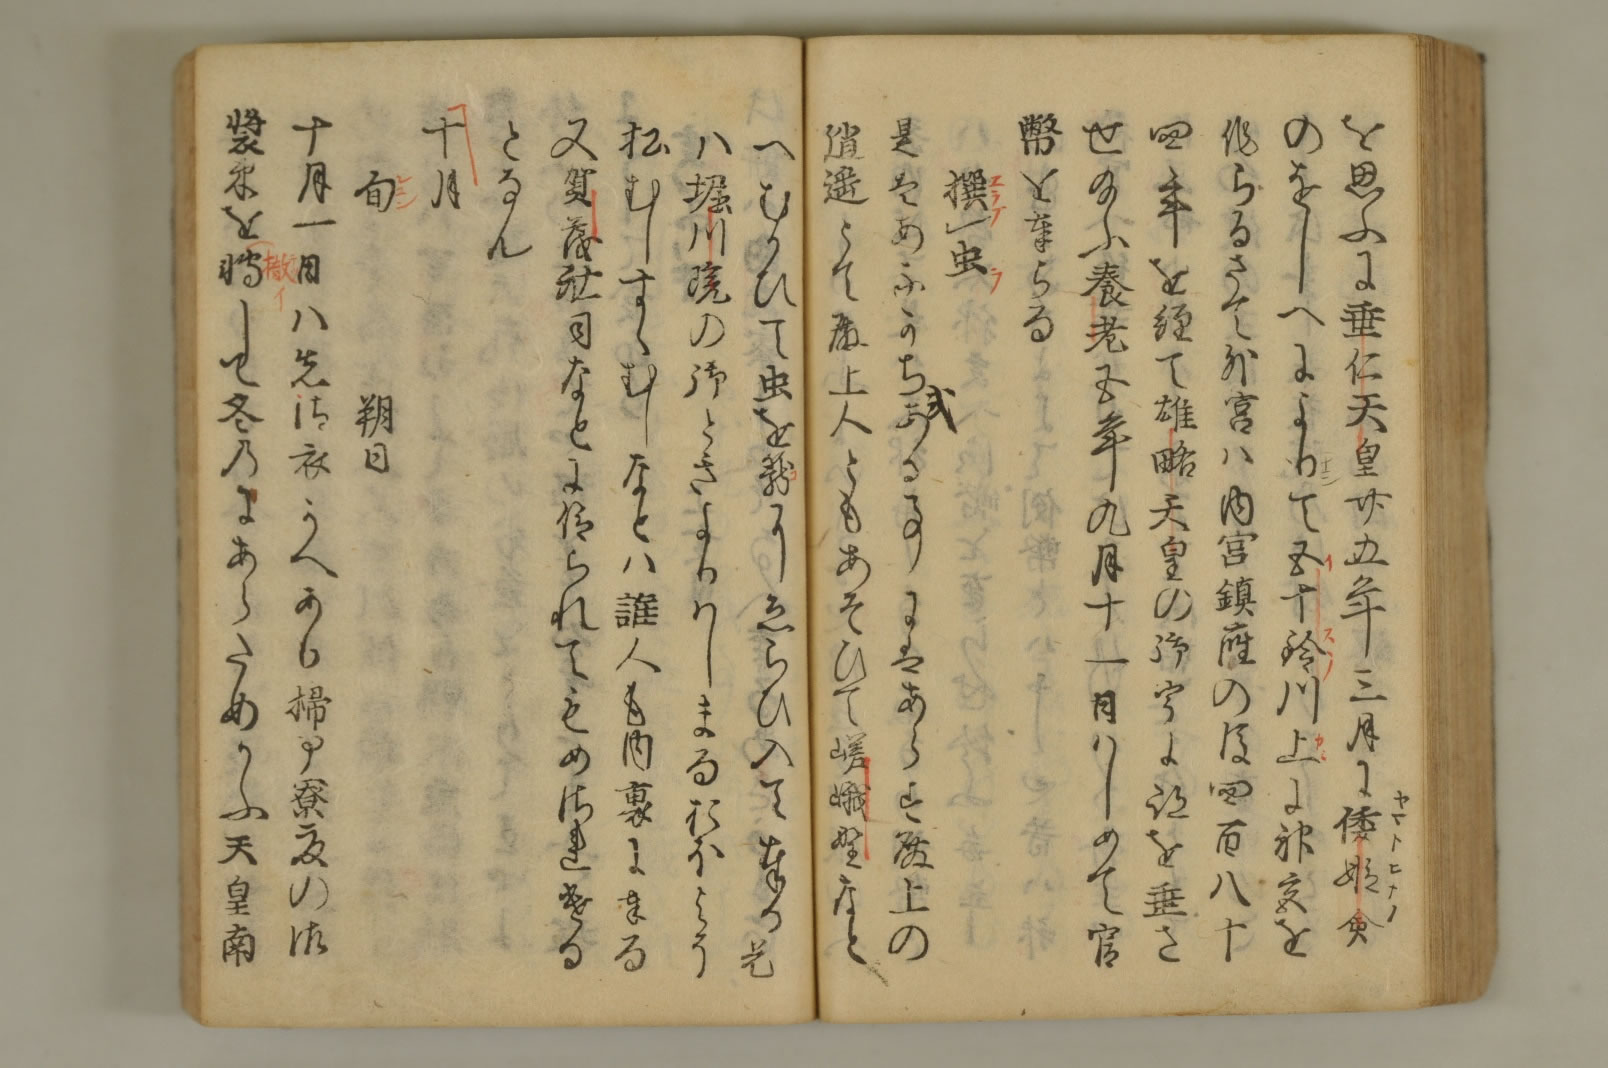 を思ふに垂仁天皇廿五年三月に倭姫命
のをしへによりて五十鈴川上に神交を
作らるさて外宮ハ内宮鎮座の後四百八十
四年を経て雄略天皇の御宇に跡を垂さ
せ給ふ養老五年九月十一日はしめて官
幣を奉らる
撰虫
是はあなかち式ある事にはあらす殿上の
逍遥とて殿上人ともあそひて嵯峨野なと
へむかひて虫を籠にゑらひ入て奉る是
ハ堀川院の御ときよりはしまる松虫
松むしすゝむしなとハ誰人も内裏に奉る
又賀茂社司なとに仰られてもめされける
となん
十月
旬 朔日
十月一日ハ先御衣かへあり掃部寮夏の御
装束を撤して冬のにあらためかふ天皇南